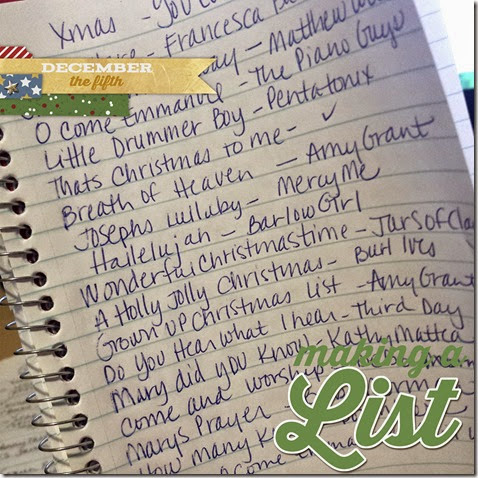 Xmas - You
- Francesca
DECEMBER
the fifth
- Matthew
O Come Emmanuel - The Piano Guys
Little Drummer Boy - Pentatonix
Thats Christmas to me - ✓
Breath of Heaven - Amy Grant
Josephs Lullaby - MercyMe
Hallelujah - BarlowGirl
Wonderful Christmastime - Jars of Clay
A Holly Jolly Christmas - Burl Ives
Grown UP Christmas List - Amy Grant
Do You Hear what I hear - Third Day
Mary did you know - Kathy Mattea
Come and worship
Marys Prayer
How many K
making a
List